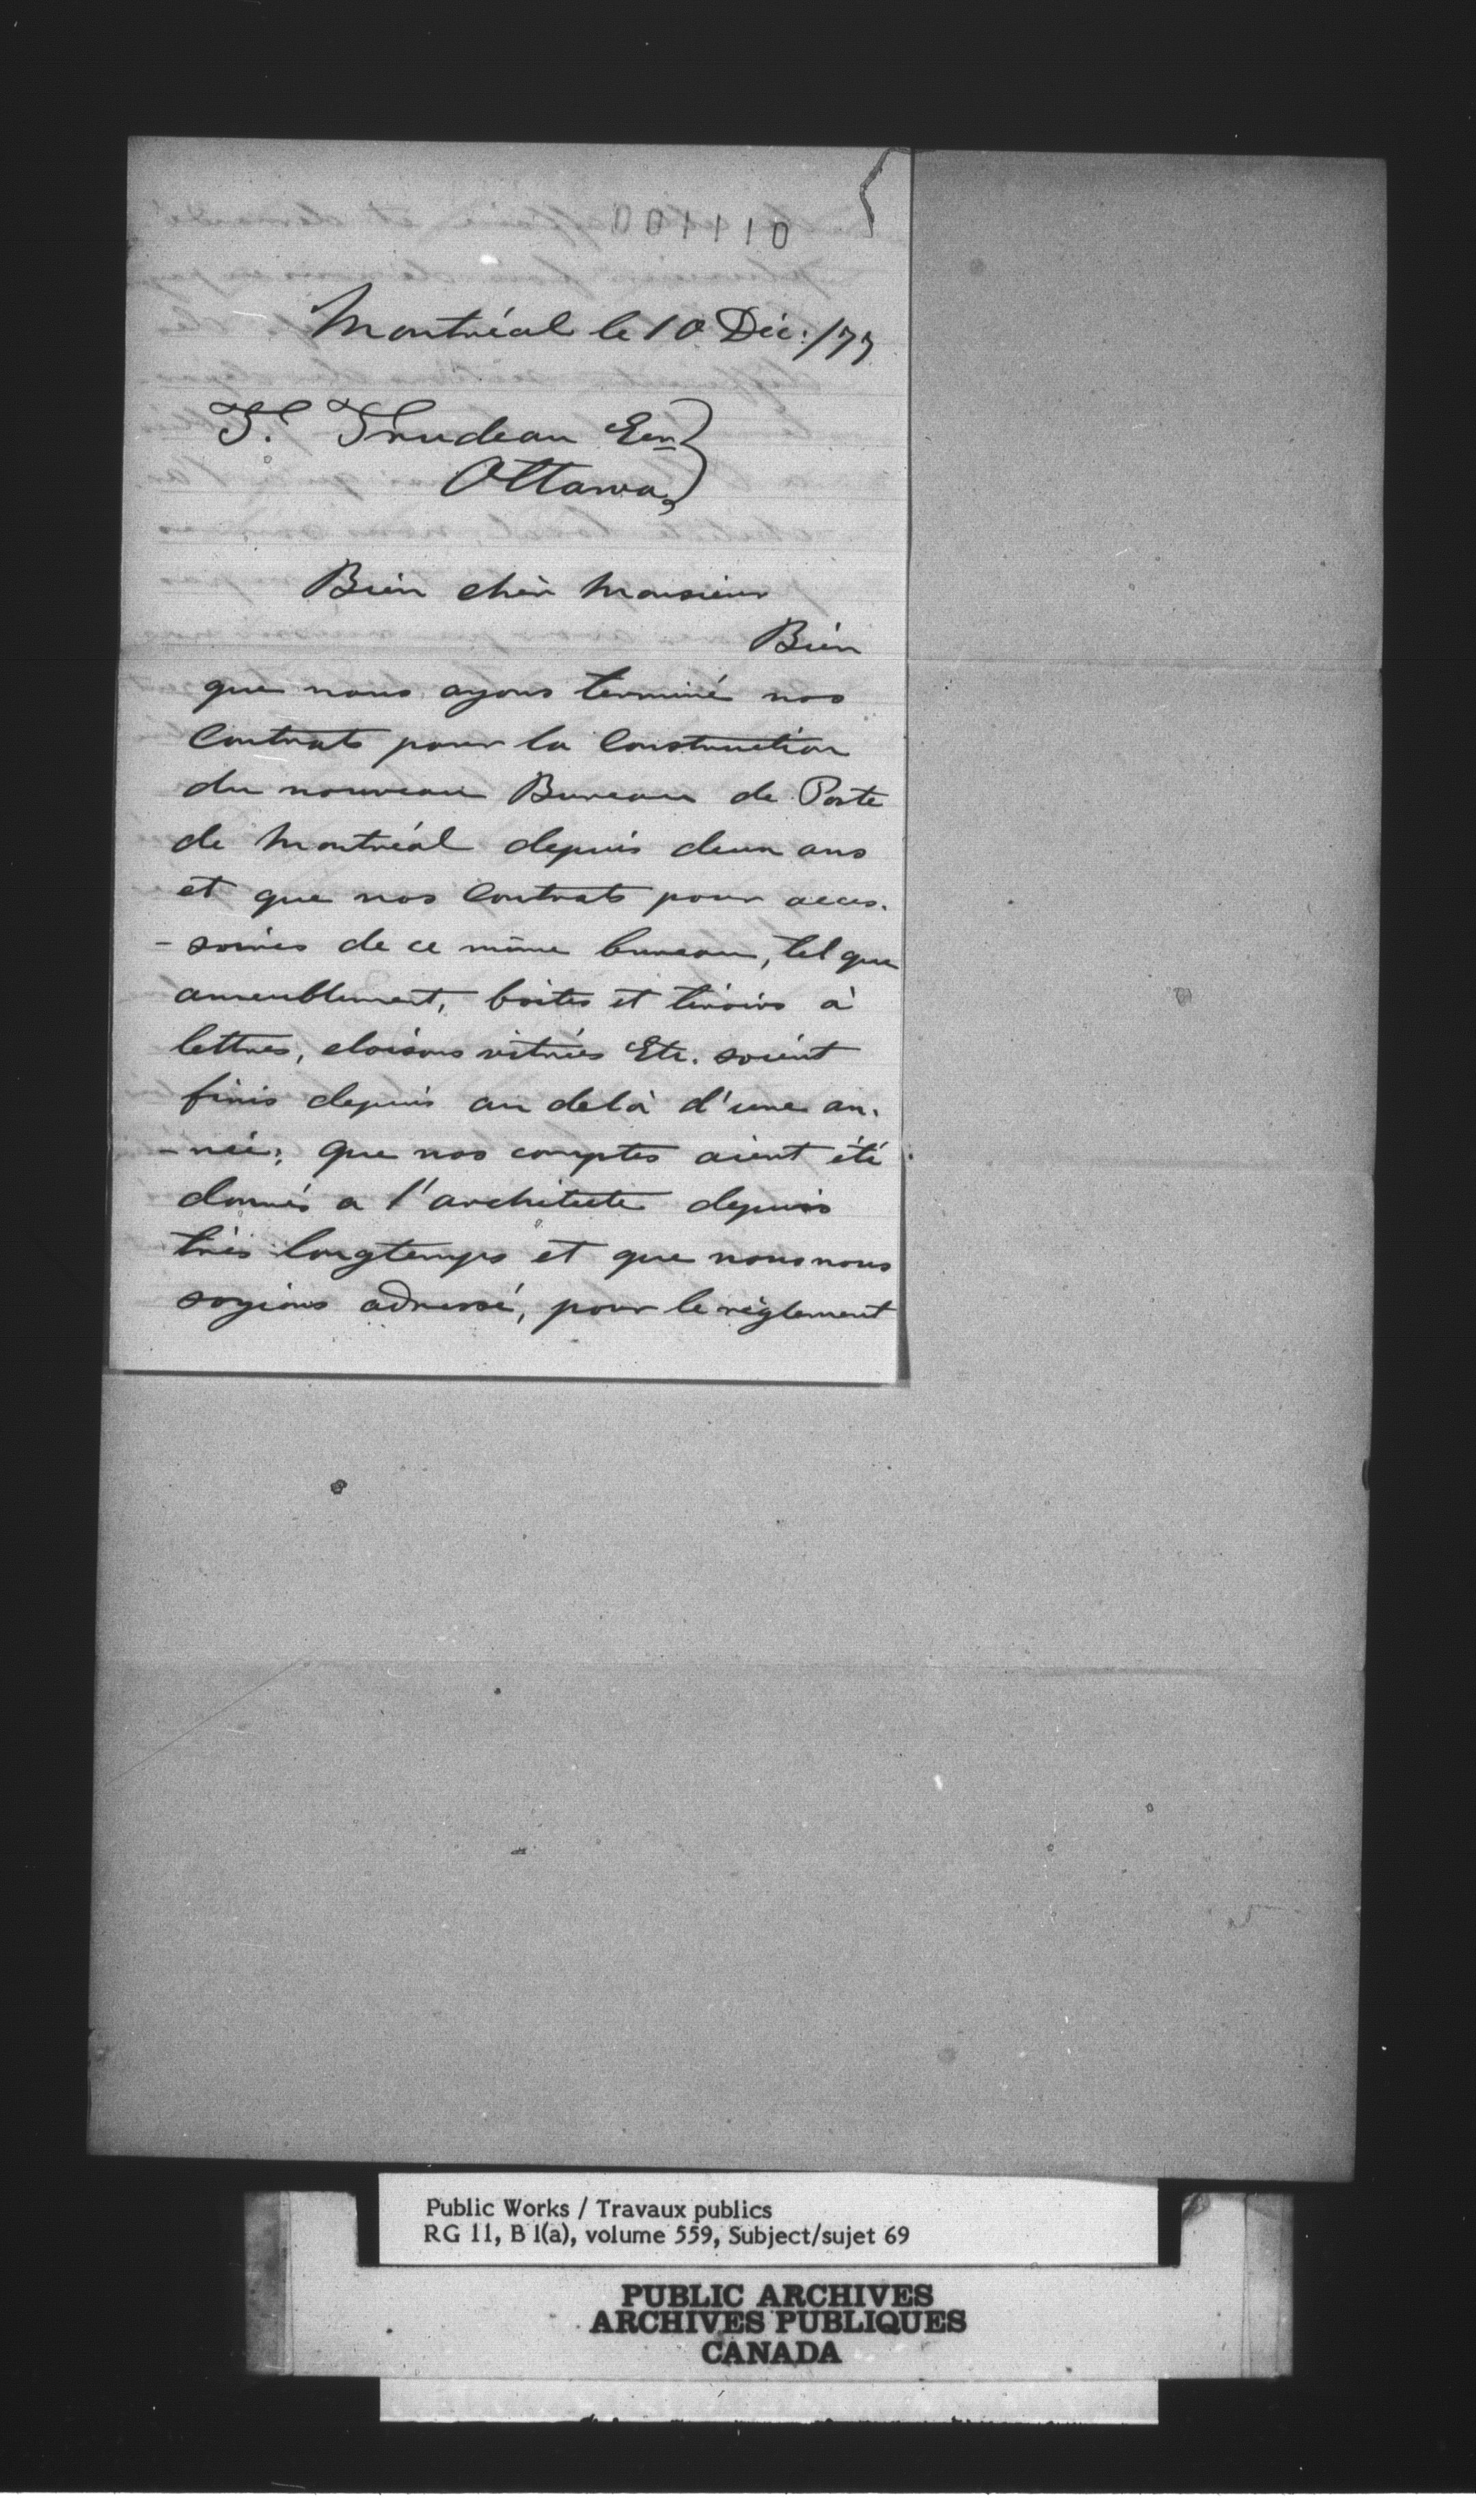 001110
Montréal le 10 Déc: /77
T. Trudeau Ecr
Ottawa
Bien cher Monsieur
Bien
que nous ayons terminé nos
Contrats pour la Construction
du nouveau Bureau de Poste
de Montréal depuis deux ans
et que nos Contrats pour acces-
-soires de ce même bureau, tel que
ameublement, boites et tiroirs à
lettres, cloisons vitrées Etc. soient
finis depuis au delà d'une an-
-née; que nos comptes aient été
donnés a l'architecte depuis
très longtemps et que nous nous
soyions adressé, pour le règlement
Public Works / Travaux publics
RG 11, B 1(a), volume 559, Subject/sujet 69
PUBLIC ARCHIVES
ARCHIVES PUBLIQUES
CANADA